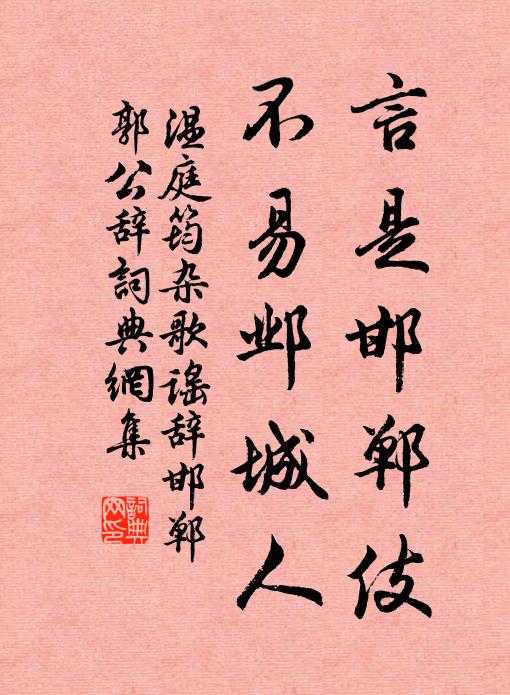 言是邯郸伎
不易邺城人
温庭筠杂歌谣辞邯郸
郭公辞詞典網集
詞典
网印